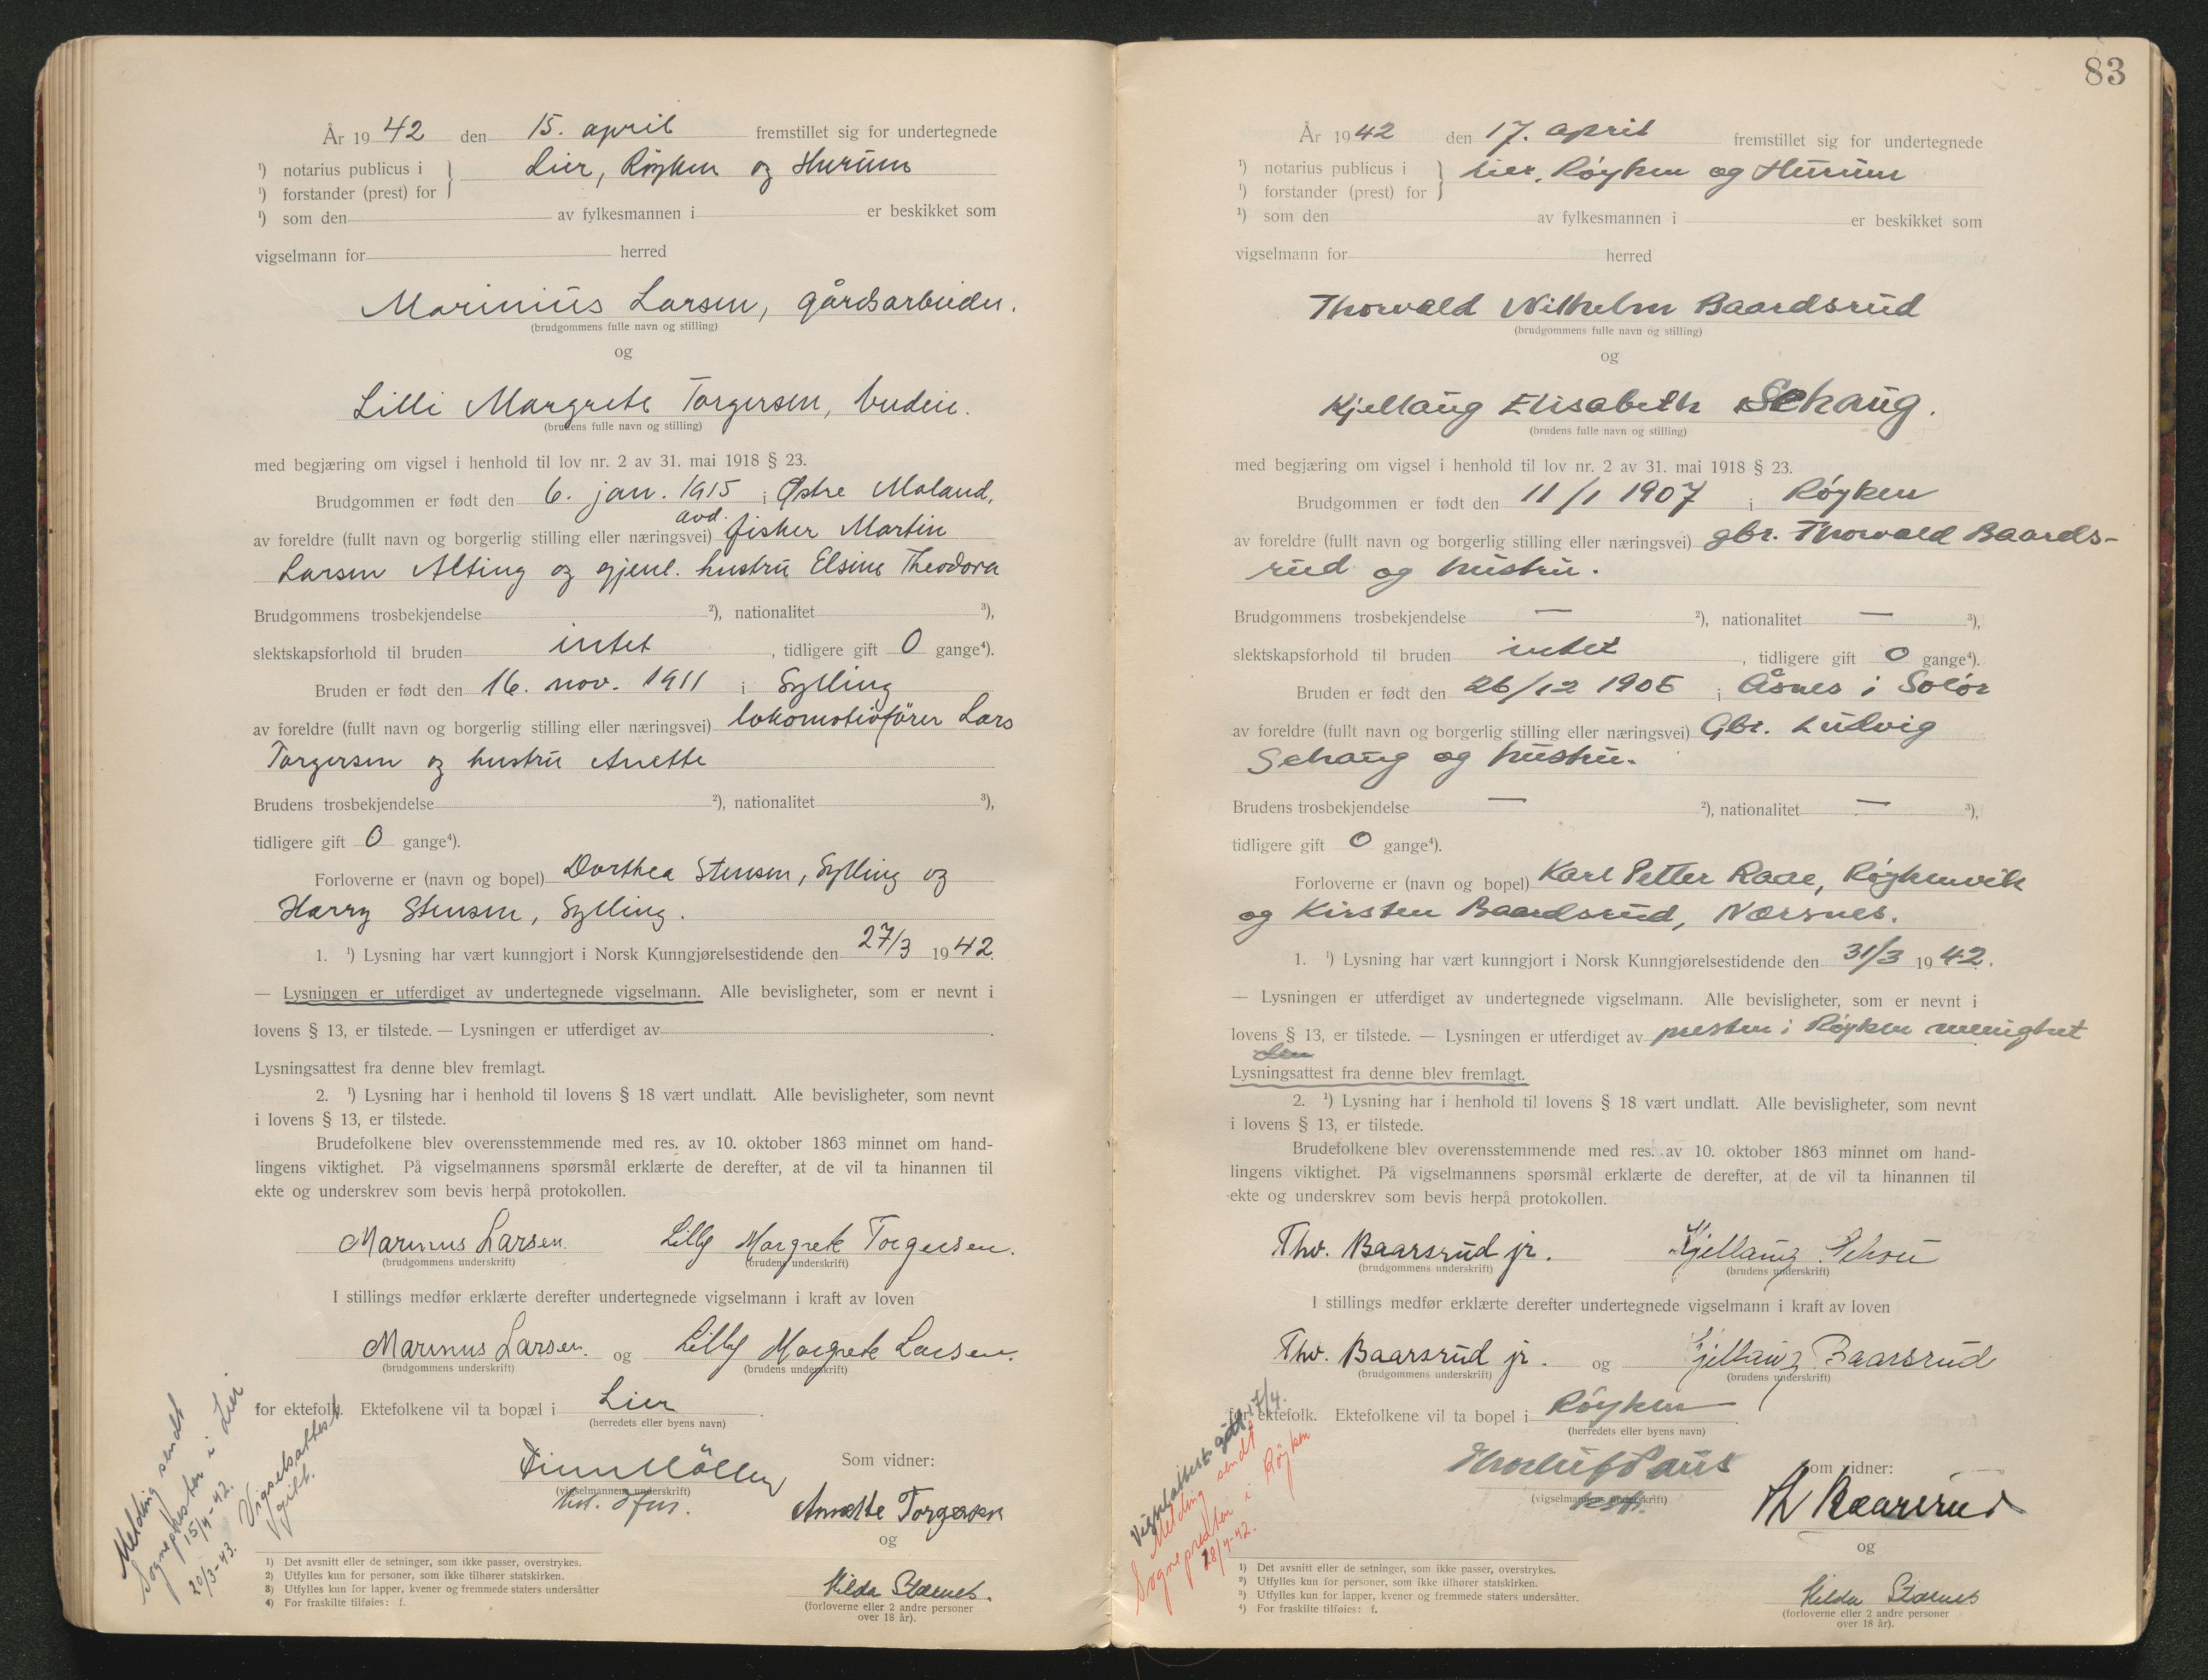 År 19 42 den 15. april fremstillet sig for undertegnede
¹) notarius publicus i
¹) forstander (prest) for } Lier, Røyken og Hurum
¹) som den av fylkesmannen i er beskikket som
vigselmann for herred
Marinius Larsen, gårdsarbeider.
(brudgommens fulle navn og stilling)
og
Lilli Margrete Torgersen, budeie.
(brudens fulle navn og stilling)
med begjæring om vigsel i henhold til lov nr. 2 av 31. mai 1918 § 23.
Brudgommen er født den 6. jan. 1915 i Østre Moland,
av foreldre (fullt navn og borgerlig stilling eller næringsvei) avd. fisker Martin
Larsen Alting og gjenl. hustru Elsine Theodora
Brudgommens trosbekjendelse ²), nationalitet ³),
slektskapsforhold til bruden intet , tidligere gift 0 gange⁴).
Bruden er født den 16. nov. 1911 i Sylling
av foreldre (fullt navn og borgerlig stilling eller næringsvei) lokomotivfører Lars
Torgersen og hustru Anette
Brudens trosbekjendelse ²), nationalitet ³),
tidligere gift 0 gange⁴).
Forloverne er (navn og bopel) Dorthea Stensen, Sylling og
Harry Stensen, Sylling.
1. ¹) Lysning har vært kunngjort i Norsk Kunngjørelsestidende den 27/3 19 42.
— Lysningen er utferdiget av undertegnede vigselmann. Alle bevisligheter, som er nevnt i
lovens § 13, er tilstede. — Lysningen er utferdiget av .
Lysningsattest fra denne blev fremlagt.
2. ¹) Lysning har i henhold til lovens § 18 vært undlatt. Alle bevisligheter, som nevnt
i lovens § 13, er tilstede.
Brudefolkene blev overensstemmende med res. av 10. oktober 1863 minnet om hand-
lingens viktighet. På vigselmannens spørsmål erklærte de derefter, at de vil ta hinannen til
ekte og underskrev som bevis herpå protokollen.
Marinus Larsen. Lilly Margrete Torgersen.
(brudgommens underskrift) (brudens underskrift)
I stillings medfør erklærte derefter undertegnede vigselmann i kraft av loven
Marinus Larsen. og Lilly Margrete Larsen.
(brudgommens underskrift) (brudens underskrift)
for ektefolk. Ektefolkene vil ta bopæl i Lier .
(herredets eller byens navn)
Finn Möller
(vigselmannens underskrift)
Som vidner:
Annette Torgersen
og
Hilda Starnes.
(forloverne eller 2 andre personer
over 18 år).
Melding sendt
Sognepresten i Lier
15/4-42.
20/3-43. Vigselsattest
gitt.
1) Det avsnitt eller de setninger, som ikke passer, overstrykes.
2) Utfylles kun for personer, som ikke tilhører statskirken.
3) Utfylles kun for lapper, kvener og fremmede staters undersåtter
4) For fraskilte tilføies: f.
83
År 19 42 den 17. april fremstillet sig for undertegnede
¹) notarius publicus i
¹) forstander (prest) for } Lier, Røyken og Hurum
¹) som den av fylkesmannen i er beskikket som
vigselmann for herred
Thorvald Wilhelm Baardsrud
(brudgommens fulle navn og stilling)
og
Kjellaug Elisabeth Schaug.
(brudens fulle navn og stilling)
med begjæring om vigsel i henhold til lov nr. 2 av 31. mai 1918 § 23.
Brudgommen er født den 11/1 1907 i Røyken
av foreldre (fullt navn og borgerlig stilling eller næringsvei) gbr. Thorvald Baards-
rud og hustru.
Brudgommens trosbekjendelse — ²), nationalitet — ³),
slektskapsforhold til bruden intet , tidligere gift 0 gange⁴).
Bruden er født den 26/12 i Åsnes i Solør
av foreldre (fullt navn og borgerlig stilling eller næringsvei) Gbr. Ludvig
Schaug og hustru.
Brudens trosbekjendelse — ²), nationalitet — ³),
tidligere gift 0 gange⁴).
Forloverne er (navn og bopel) Karl Petter Raae, Røykenvik
og Kirsten Baardsrud, Nærsnes.
1. ¹) Lysning har vært kunngjort i Norsk Kunngjørelsestidende den 31/3 19 42.
— Lysningen er utferdiget av undertegnede vigselmann. Alle bevisligheter, som er nevnt i
lovens § 13, er tilstede. — Lysningen er utferdiget av presten i Røyken menighet
Lysningsattest fra denne blev fremlagt.
2. ¹) Lysning har i henhold til lovens § 18 vært undlatt. Alle bevisligheter, som nevnt
i lovens § 13, er tilstede.
Brudefolkene blev overensstemmende med res. av 10. oktober 1863 minnet om hand-
lingens viktighet. På vigselmannens spørsmål erklærte de derefter, at de vil ta hinannen til
ekte og underskrev som bevis herpå protokollen.
Thv. Baarsrud jr. Kjellaug
(brudgommens underskrift) (brudens underskrift)
I stillings medfør erklærte derefter undertegnede vigselmann i kraft av loven
Thv. Baarsrud jr. og Kjellaug Baarsrud
(brudgommens underskrift) (brudens underskrift)
for ektefolk. Ektefolkene vil ta bopel i Røyken
(herredets eller byens navn)
Thorleif Paus
(vigselmannens underskrift)
Som vidner:
Th Baarsrud
og
Hilda Starnes
(forloverne eller 2 andre personer
over 18 år).
Vigselattest gitt 17/4.
Melding sendt
Sognepresten i Røyken
18/4-42.
1) Det avsnitt eller de setninger, som ikke passer, overstrykes.
2) Utfylles kun for personer, som ikke tilhører statskirken.
3) Utfylles kun for lapper, kvener og fremmede staters undersåtter.
4) For fraskilte tilføies: f.